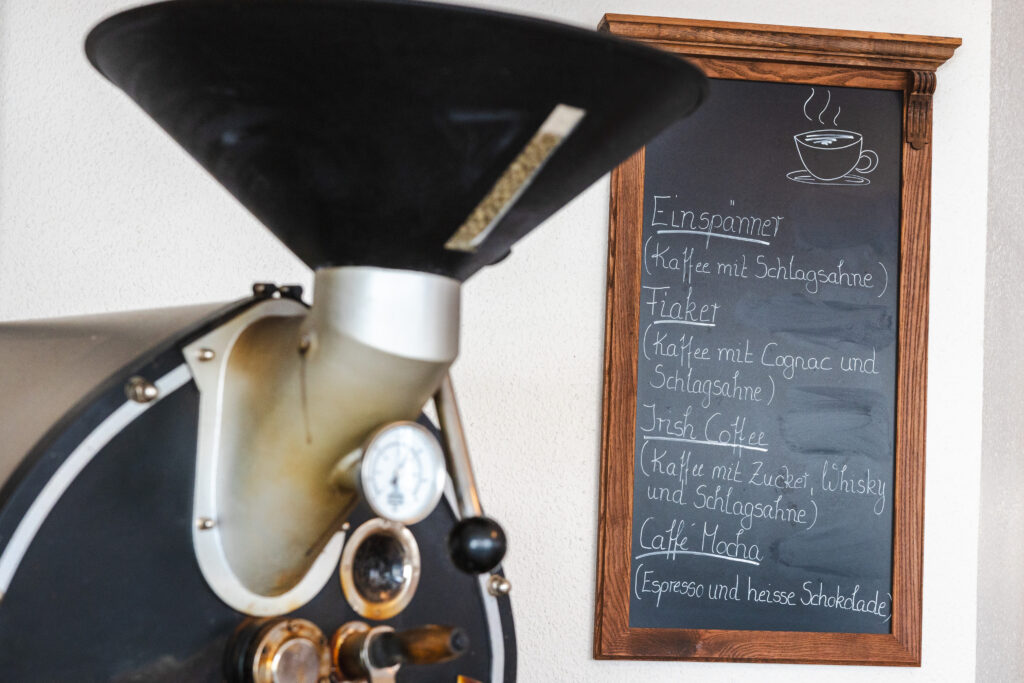 Einspänner
(Kaffee mit Schlagsahne)
Fiaker
(Kaffee mit Cognac und
Schlagsahne)
Irish Coffee
(Kaffee mit Zucker, Whisky
und Schlagsahne)
Caffé Mocha
(Espresso und heisse Schokolade)